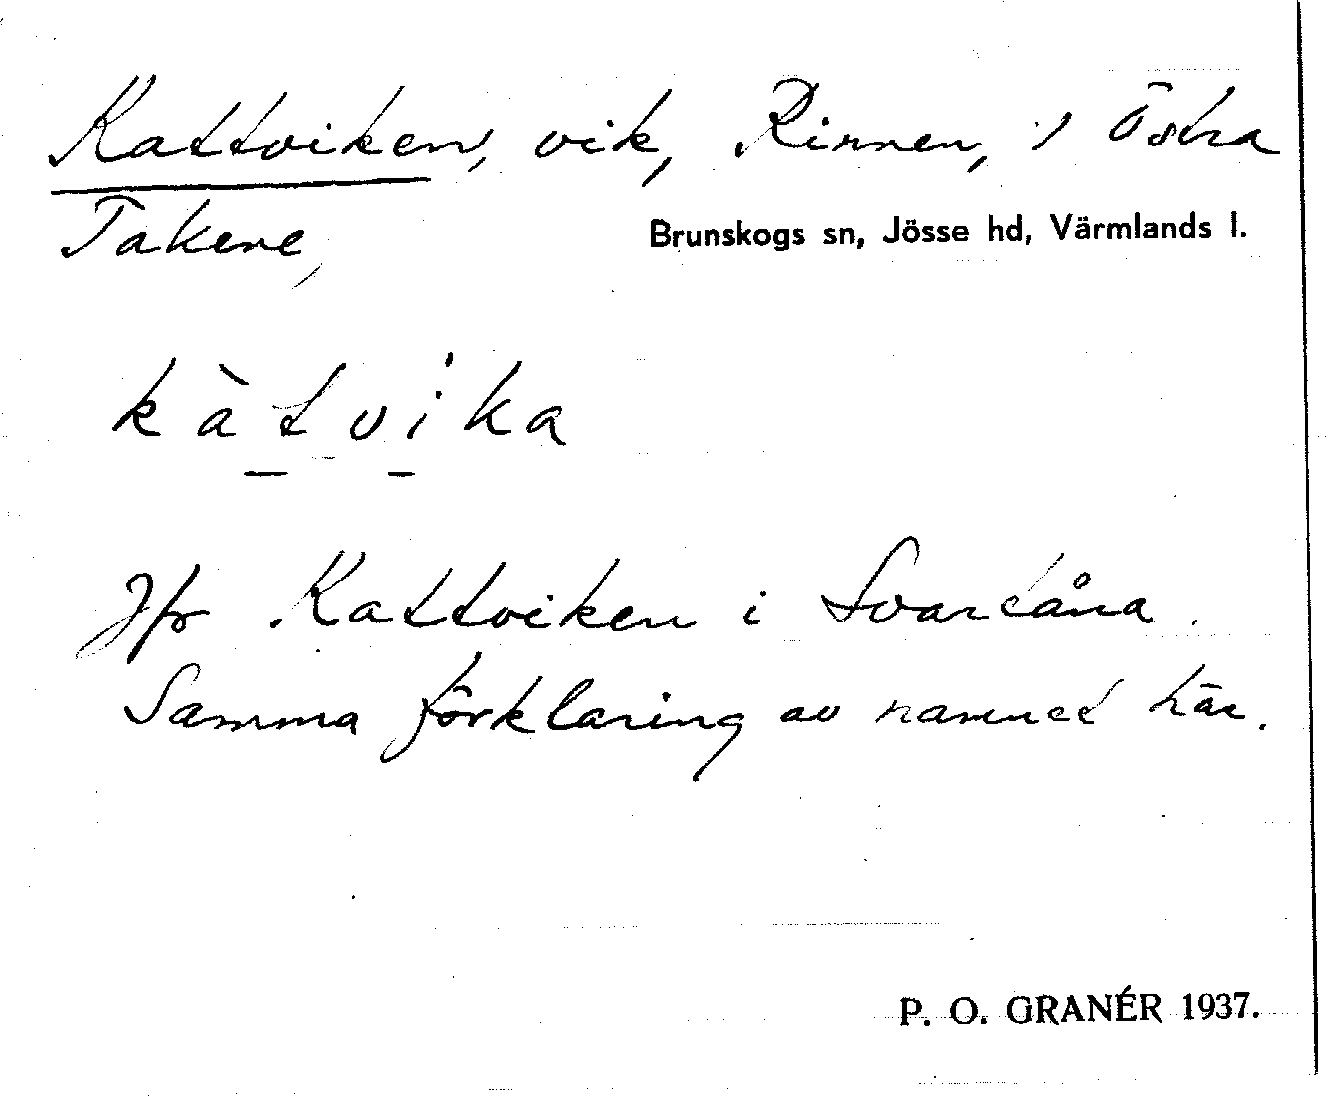 Kattviken, vik, Rinnen, i Östra
Takene,
Brunskogs sn, Jösse hd, Värmlands l.
kàtvi'ka
Jfr Kattviken i Svartåna.
Samma förklaring av namnet här.
P. O. GRANÉR 1937.